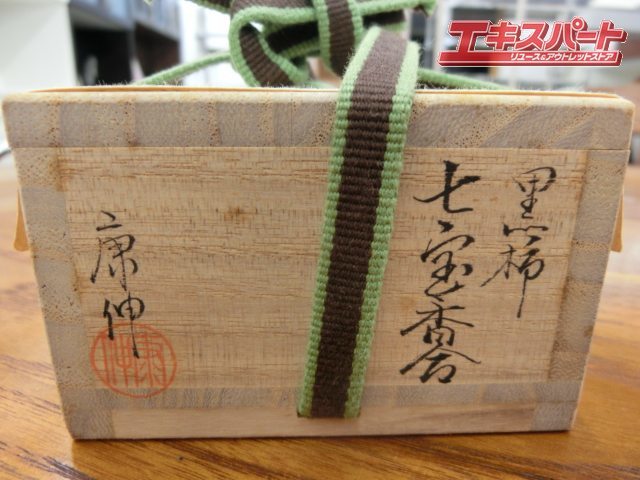 エキスパート
リユース&アウトレットストア
黒柿
七宝香合
康伸
康伸